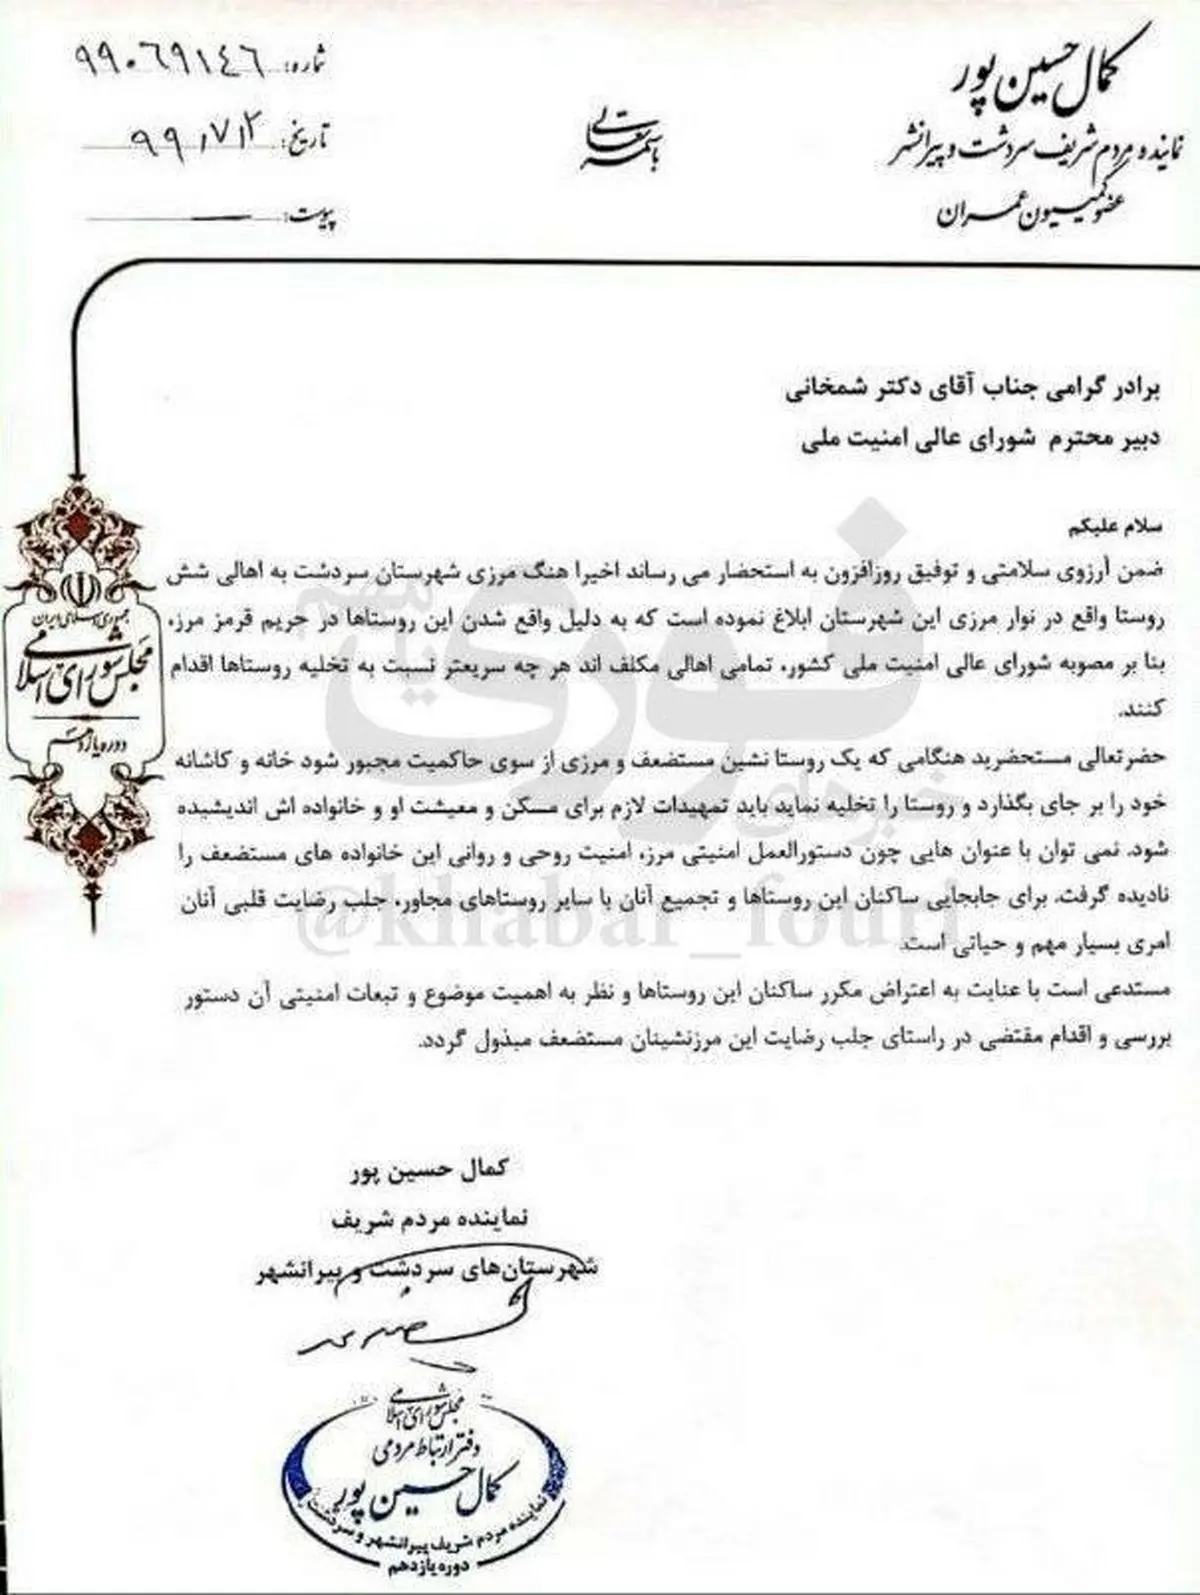 کمال حسین پور
نماینده مردم شریف سردشت و پیرانشهر
عضو کمیسیون عمران
باسمه تعالی
شماره: ۹۹۰۶۹۱۴۶
تاریخ: ۹۹/۷/۲
پیوست: ــــــ
برادر گرامی جناب آقای دکتر شمخانی
دبیر محترم شورای عالی امنیت ملی
سلام علیکم
ضمن آرزوی سلامتی و توفیق روزافزون به استحضار می رساند اخیرا هنگ مرزی شهرستان سردشت به اهالی شش
روستا واقع در نوار مرزی این شهرستان ابلاغ نموده است که به دلیل واقع شدن این روستاها در حریم قرمز مرز،
بنا بر مصوبه شورای عالی امنیت ملی کشور، تمامی اهالی مکلف اند هر چه سریعتر نسبت به تخلیه روستاها اقدام
کنند.
حضرتعالی مستحضرید هنگامی که یک روستا نشین مستضعف و مرزی از سوی حاکمیت مجبور شود خانه و کاشانه
خود را بر جای بگذارد و روستا را تخلیه نماید باید تمهیدات لازم برای مسکن و معیشت او و خانواده اش اندیشیده
شود. نمی توان با عنوان هایی چون دستورالعمل امنیتی مرز، امنیت روحی و روانی این خانواده های مستضعف را
نادیده گرفت. برای جابجایی ساکنان این روستاها و تجمیع آنان با سایر روستاهای مجاور، جلب رضایت قلبی آنان
امری بسیار مهم و حیاتی است.
مستدعی است با عنایت به اعتراض مکرر ساکنان این روستاها و نظر به اهمیت موضوع و تبعات امنیتی آن دستور
بررسی و اقدام مقتضی در راستای جلب رضایت این مرزنشینان مستضعف مبذول گردد.
کمال حسین پور
نماینده مردم شریف
شهرستان‌های سردشت و پیرانشهر
مجلس شورای اسلامی
دفتر ارتباط مردمی
کمال حسین پور
نماینده مردم شریف پیرانشهر و سردشت
دوره یازدهم
جمهوری اسلامی ایران
مجلس شورای اسلامی
دوره یازدهم
فوری
@khabar_fouri